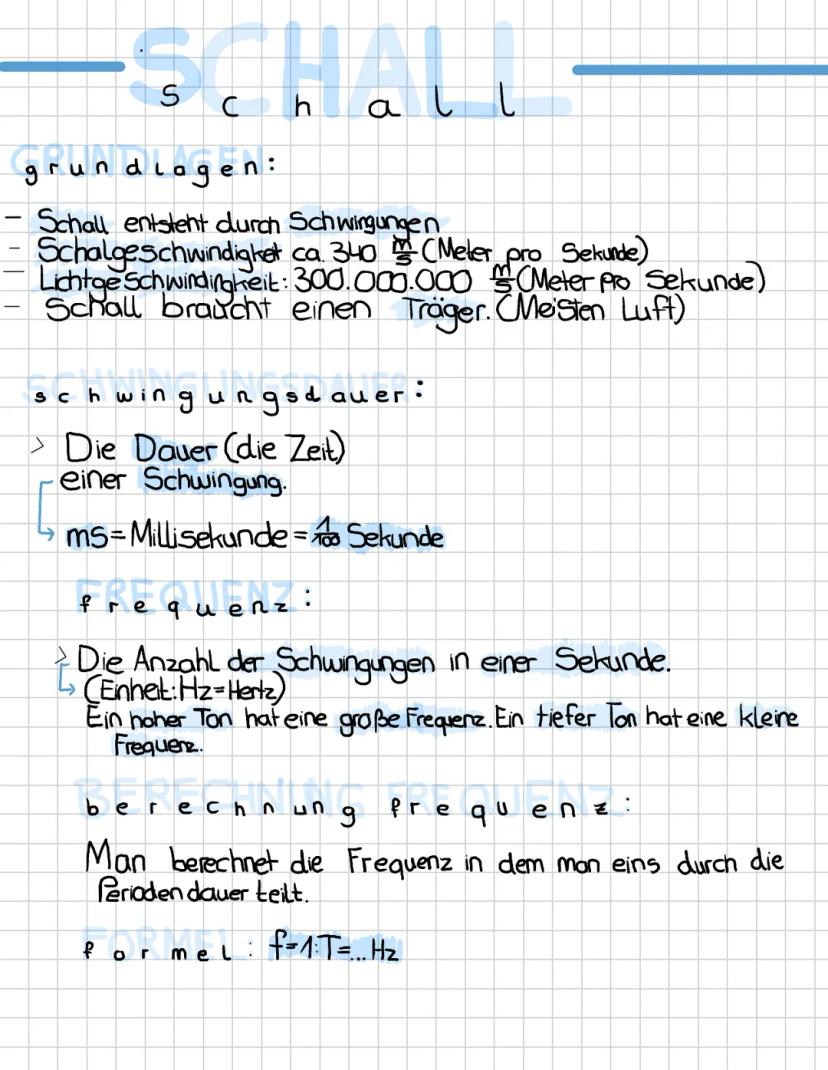 SCHALL
schall
GRUNDLAGEN
grundlagen:
- Schall entsteht durch Schwingungen
- Schalgeschwindigket ca. 340 m/s (Meter pro Sekunde)
- Lichtgeschwindigkeit: 300.000.000 m/s (Meter pro Sekunde)
- Schall braucht einen Träger. (Meisten Luft)
SCHWINGUNGSDAUER
schwingungsdauer:
> Die Dauer (die Zeit)
einer Schwingung.
↳ ms = Millisekunde = 1/100 Sekunde
FREQUENZ
frequenz:
> Die Anzahl der Schwingungen in einer Sekunde.
↳ (Einheit: Hz = Hertz)
Ein hoher Ton hat eine große Frequenz. Ein tiefer Ton hat eine kleine
Frequenz.
BERECHNUNG FREQUENZ
berechnung frequenz:
Man berechnet die Frequenz in dem man eins durch die
Periodendauer teilt.
FORMEL
formel: f=1:T=...Hz